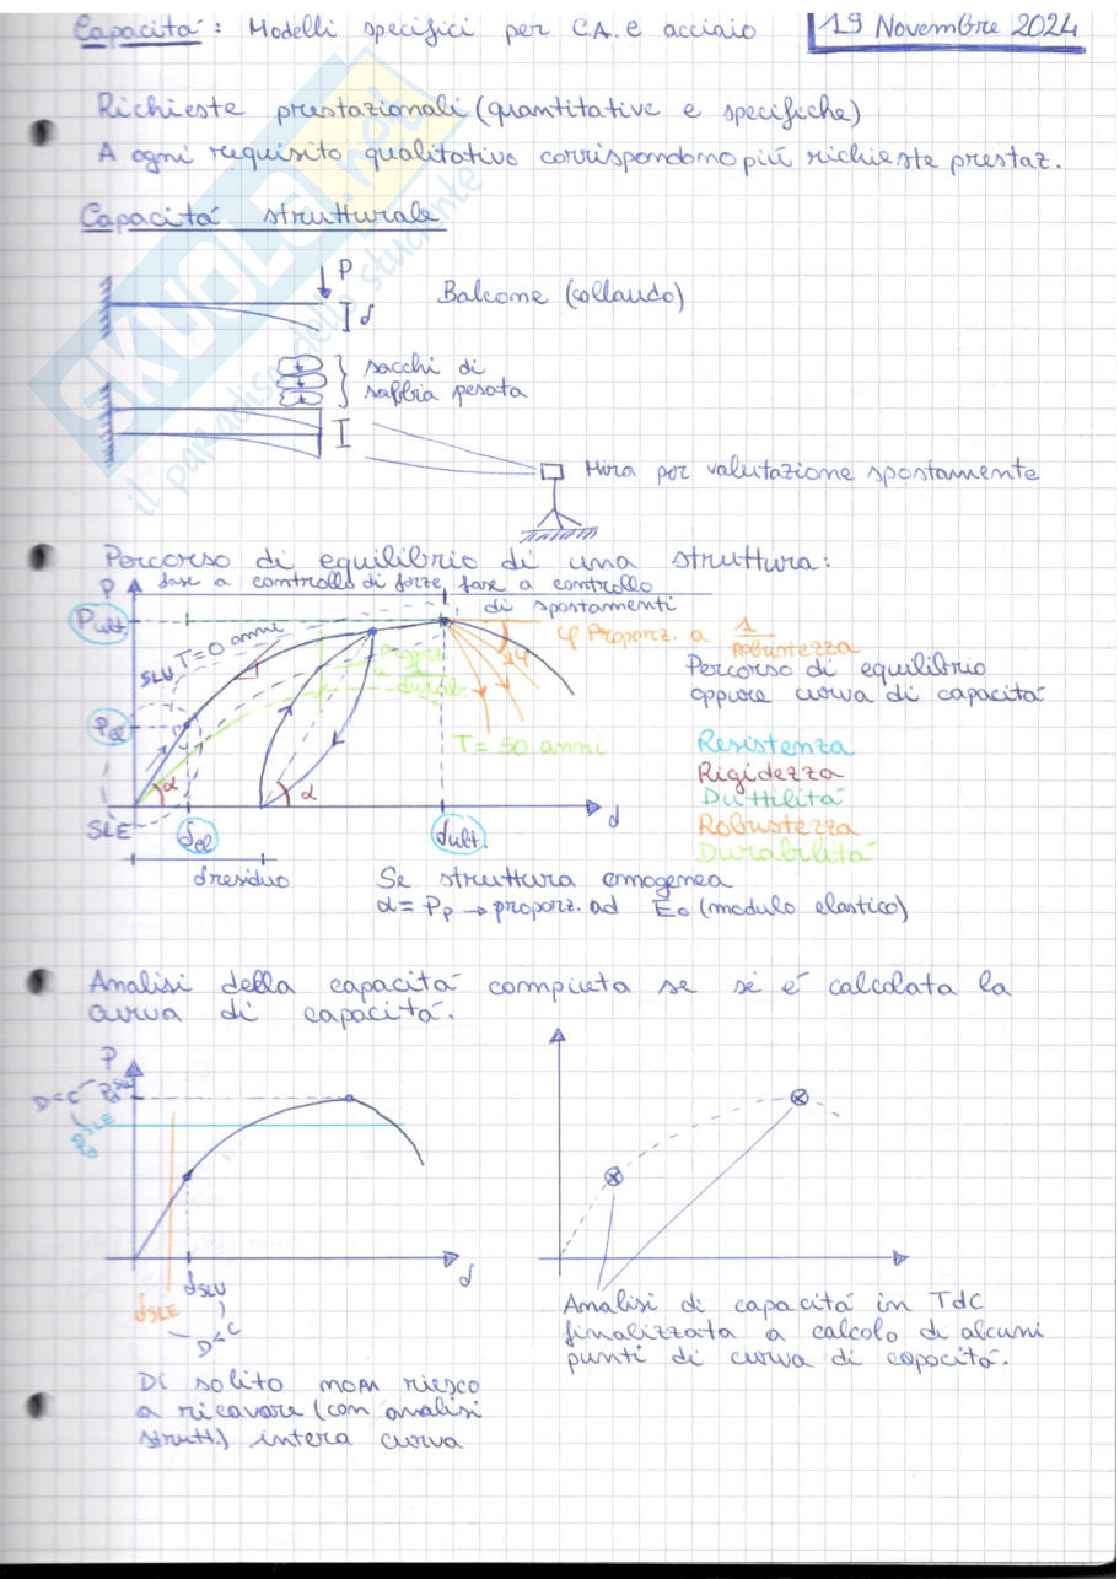 Capacitá: Modelli specifici per C.A. e acciaio
19 Novembre 2024
Richieste prestazionali (quantitative e specifiche)
A ogni requisito qualitativo corrispondono piú richieste prestaz.
Capacitá strutturale
P
d
Balcone (collaudo)
sacchi di
sabbia pesata
Mira per valutazione spostamente
Percorso di equilibrio di una struttura:
P
fase a controllo di forze, fase a controllo
di spostamenti
Pult.
T=0 anni
SLU
φ Proporz. a 1
robustezza
14
Percorso di equilibrio
oppure curva di capacitá
Pel
T=50 anni
Resistenza
Rigidezza
Duttilitá
Robustezza
Durabilitá
α
α
d
SLE
del
dult.
dresiduo
Se struttura omogenea
α = Pp → proporz. ad E0 (modulo elastico)
Analisi della capacitá compiuta se si é calcolata la
curva di capacitá.
P
D=C
d
dSLU
dSLE
D<C
Analisi di capacitá in TdC
finalizzata a calcolo di alcuni
punti di curva di capacitá.
Di solito non riesco
a ricavare (con analisi
strutt.) intera curva
SKUOLA.net
il paradiso dello studente